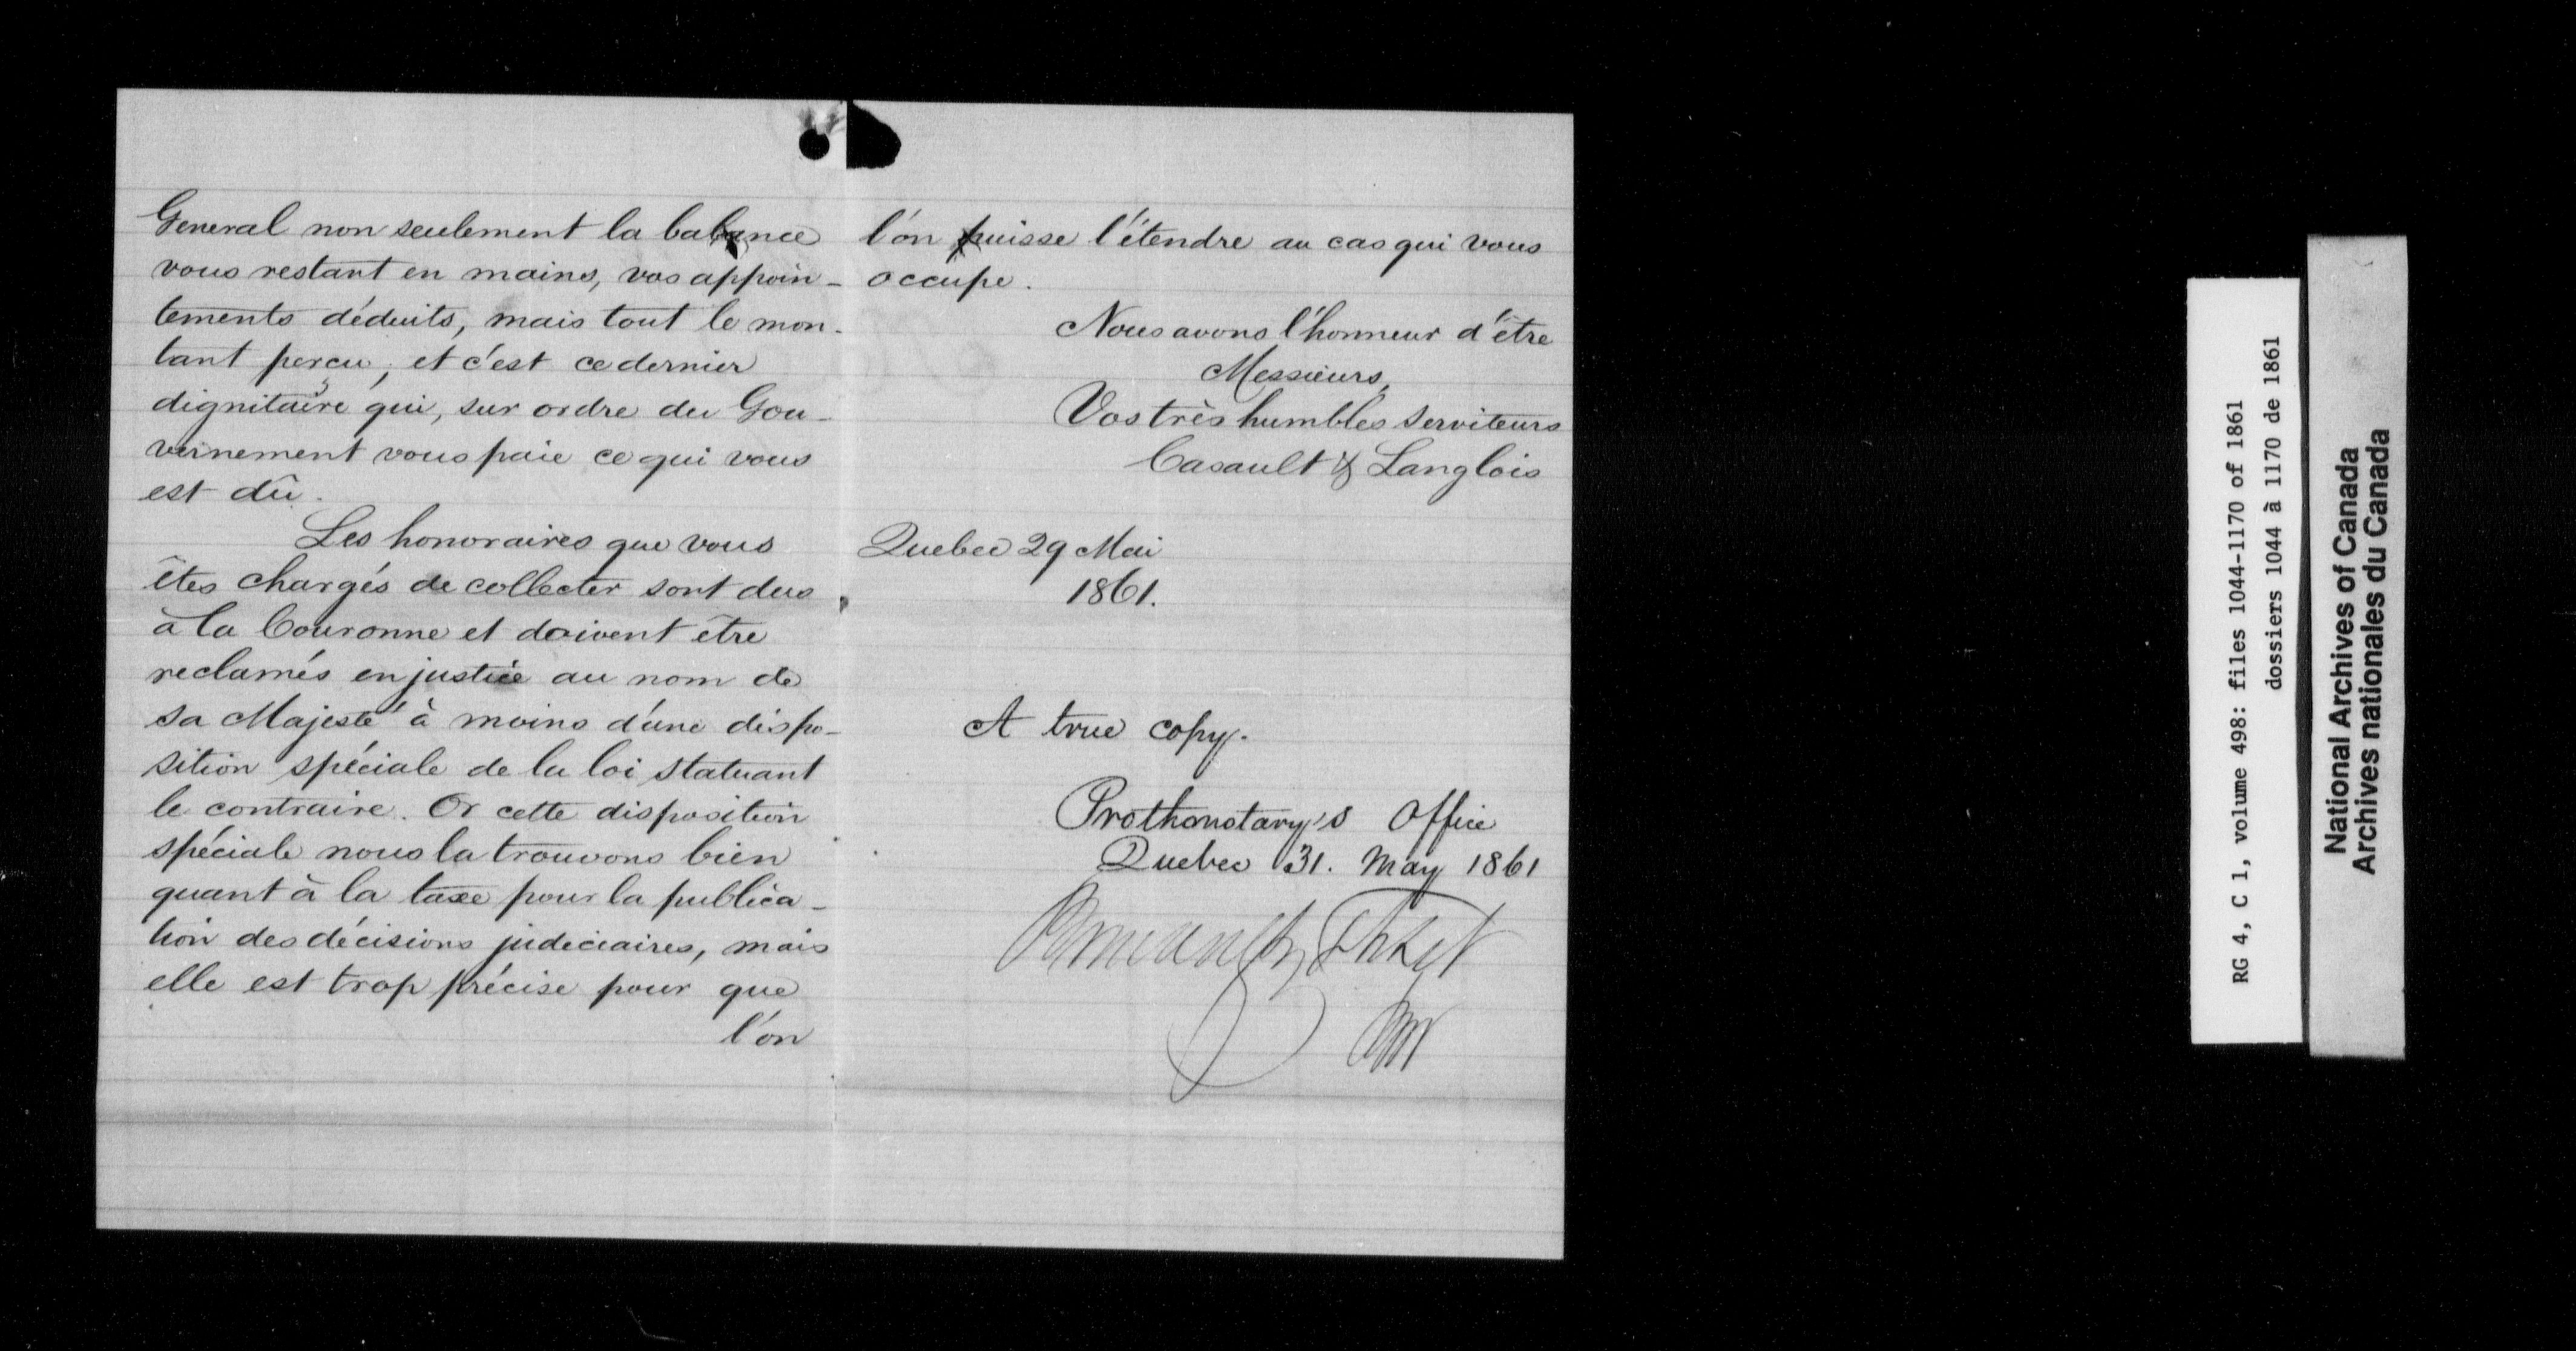 General non seulement la balance
vous restant en mains, vos appoin-
tements déduits, mais tout le mon-
tant perçu, et c'est ce dernier
dignitaire qui, sur ordre du Gou-
vernement vous paie ce qui vous
est dû.
Les honoraires que vous
êtes chargés de collecter sont dus
à la Couronne et doivent être
reclamés en justice au nom de
sa Majesté à moins d'une dispo-
sition spéciale de la loi statuant
le contraire. Or cette disposition
spéciale nous la trouvons bien
quant à la taxe pour la publica-
tion des décisions judiciaires, mais
elle est trop précise pour que
l'on
l'on puisse l'étendre au cas qui vous
occupe.
Nous avons l'honneur d'être
Messieurs,
Vos très humbles serviteurs
Casault & Langlois
Quebec 29 Mai
1861.
A true copy.
Prothonotary's Office
Quebec 31. May 1861
RG 4, C 1, volume 498: files 1044-1170 of 1861
dossiers 1044 à 1170 de 1861
National Archives of Canada
Archives nationales du Canada